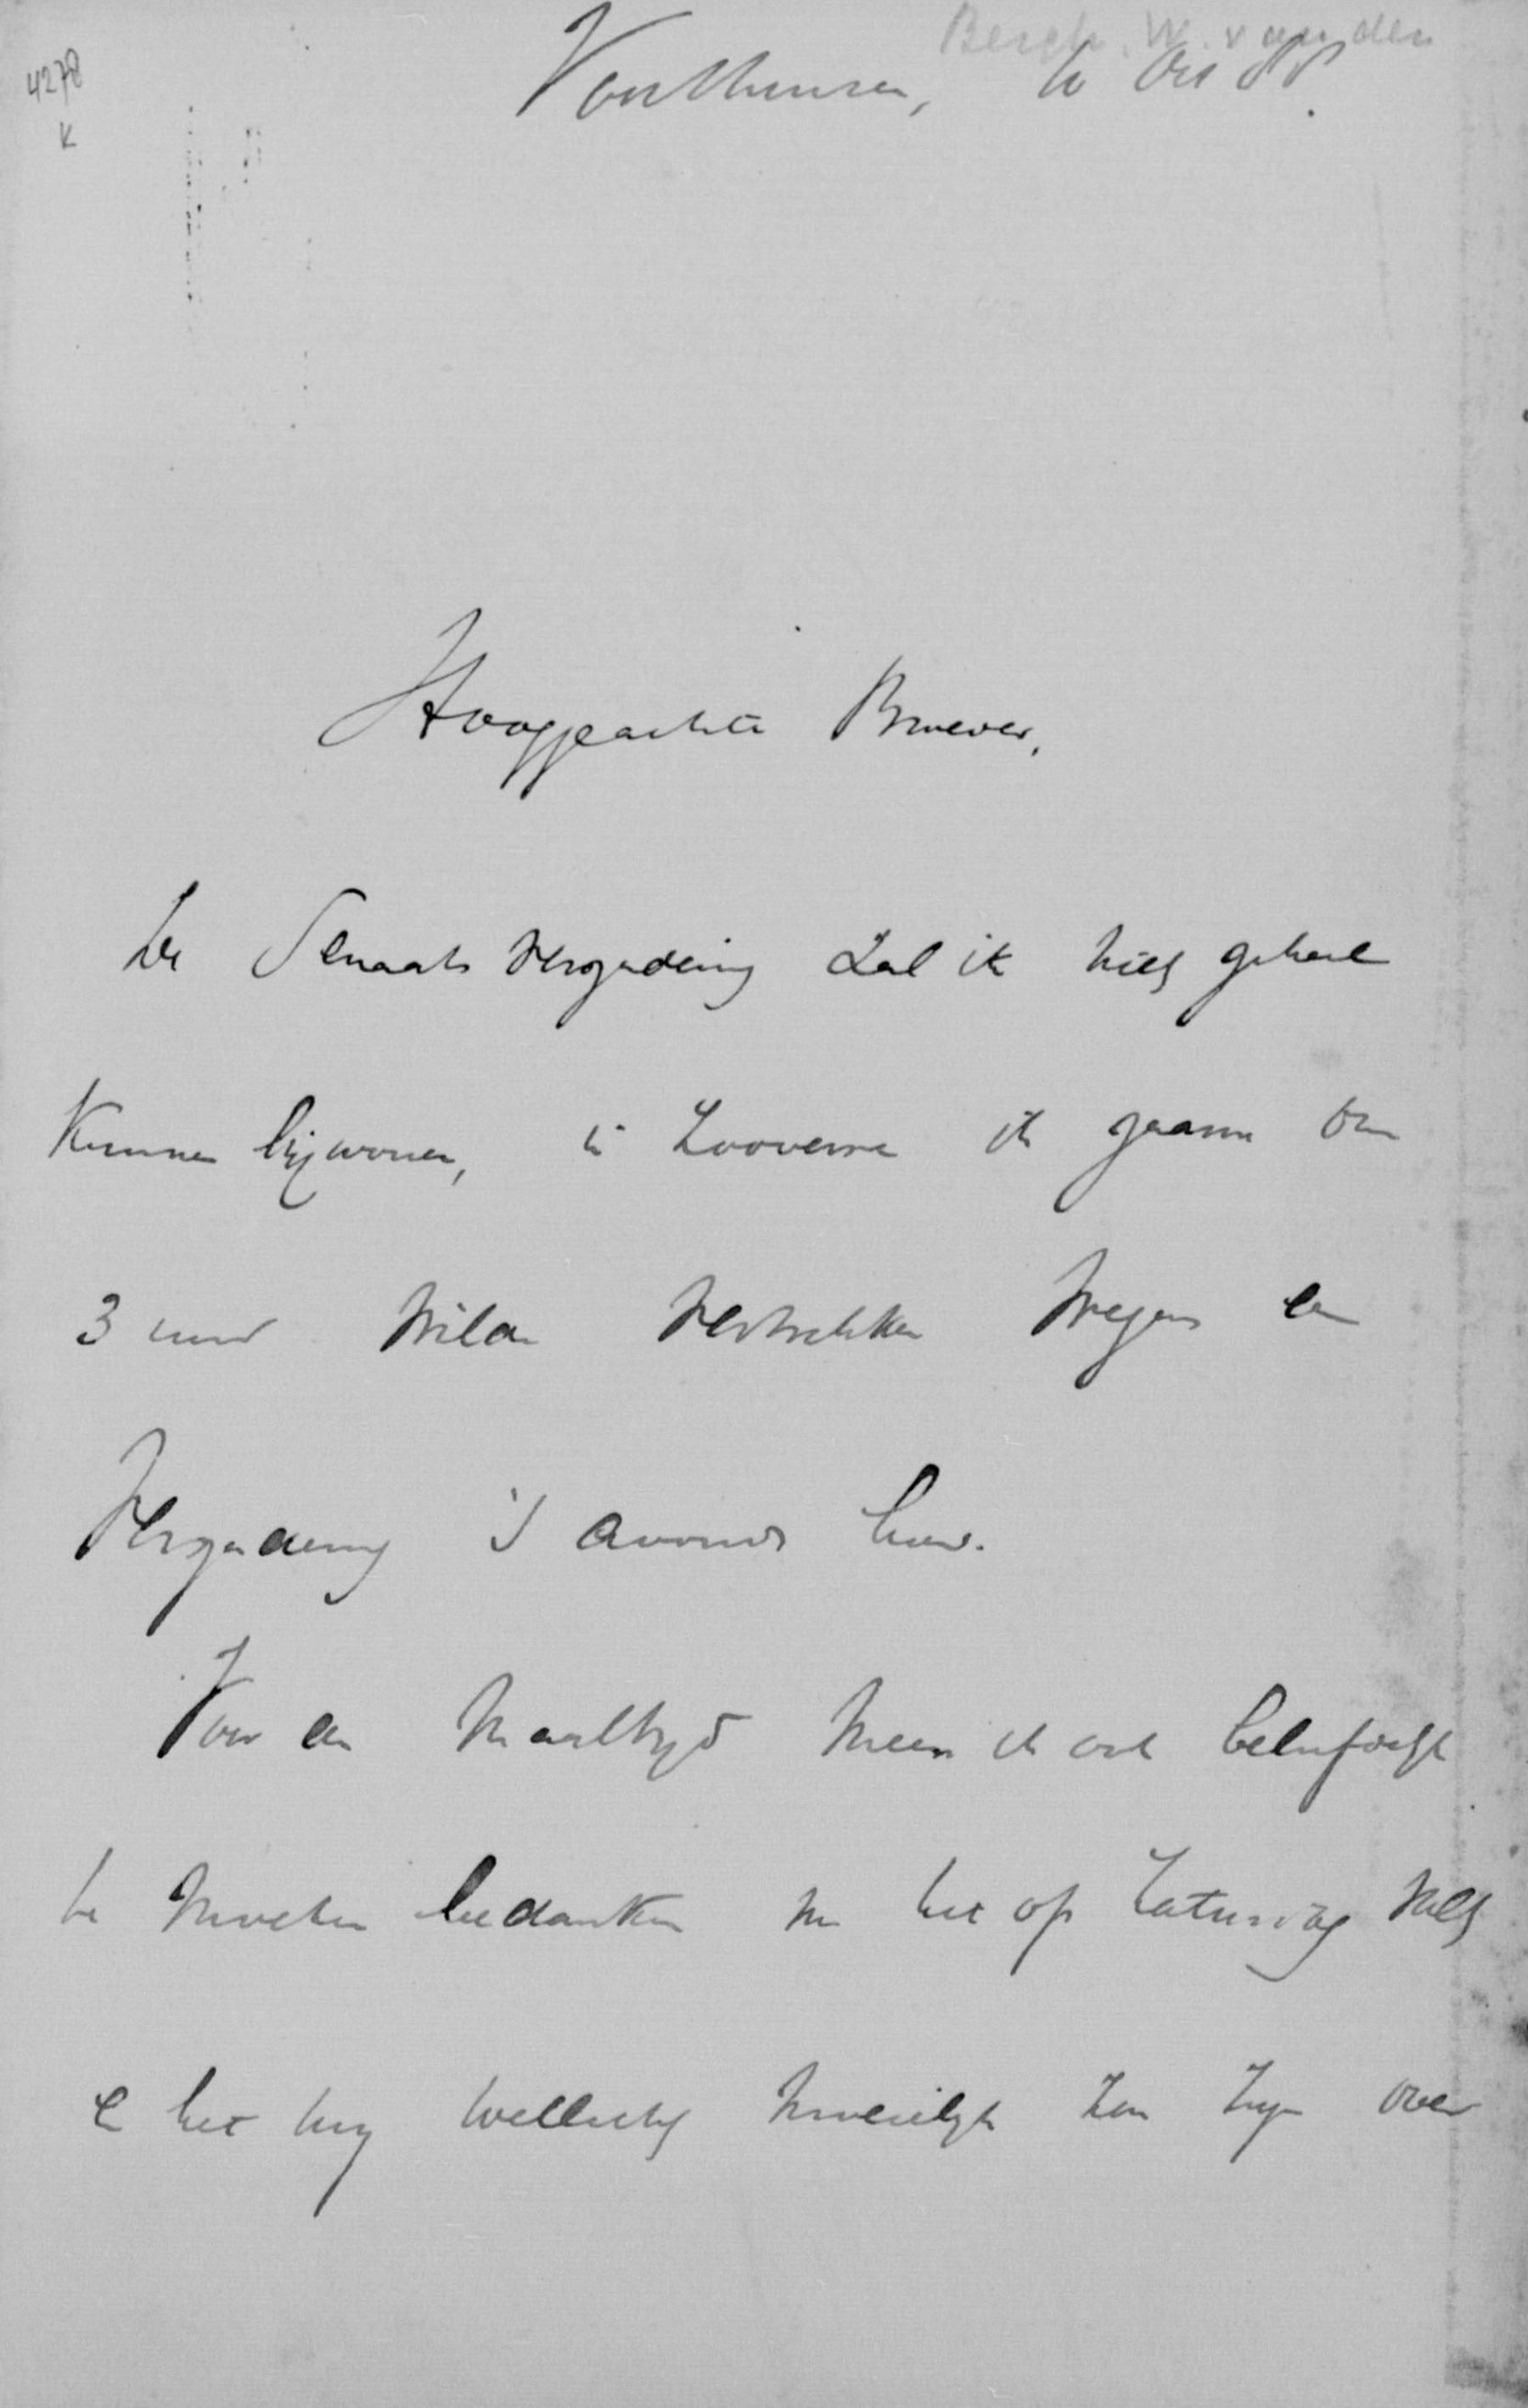 4278
K
Bergh, W. van den
Voorthuizen, 10 Oct 88.
Hooggeachte Broeder,
De Senaats vergadering zal ik niet geheel
kunnen bijwonen, in zooverre ik gaarne om
3 uur wilde vertrekken wegens een
Vergadering 's avonds hier.
Voor den Maaltijd meen ik ook beleefdelijk
te moeten bedanken nu het op Zaturdag valt
en het mij wellicht moeielijk zou zijn over